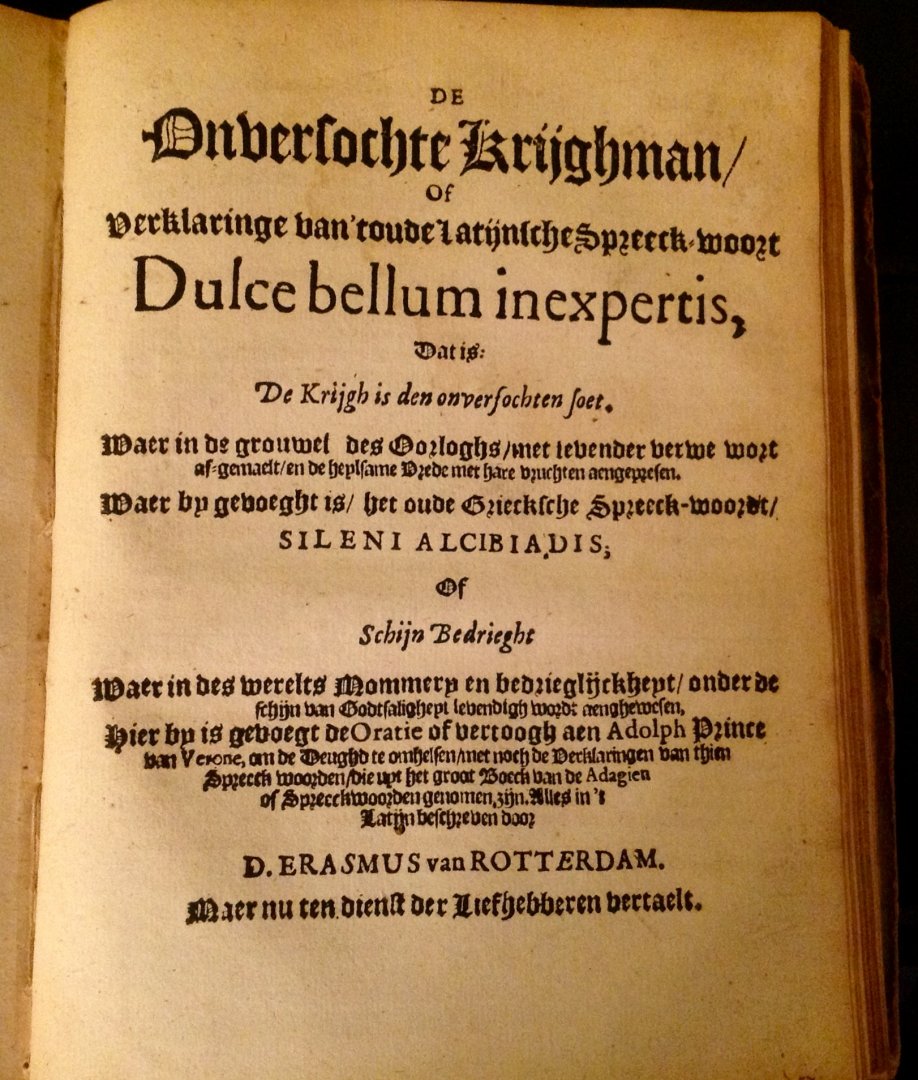 DE
Onversochte Krijghman/
Of
Verklaringe van 't oude Latijnsche Spreeck-woort
Dulce bellum inexpertis,
Dat is:
De Krijgh is den onversochten soet.
Waer in de grouwel des Oorloghs/met levender verwe wort
af-gemaelt/en de heylsame Vrede met hare vruchten aengepresen.
Waer by gevoeght is/ het oude Griecksche Spreeck-woordt/
SILENI ALCIBIADIS;
Of
Schijn Bedrieght
Waer in des werelts Mommery en bedrieglijckheyt/ onder de
schijn van Godtsaligheyt levendigh wordt aenghewesen,
Hier by is gevoegt de Oratie of vertoogh aen Adolph Prince
van Verone, om de Deughd te omhelsen/met noch de Verklaringen van thien
Spreeck woorden/die uyt het groot Boeck van de Adagien
of Spreeckwoorden genomen zijn. Alles in 't
Latijn beschreven door
D. ERASMUS van ROTTERDAM.
Maer nu ten dienst der Liefhebberen vertaelt.